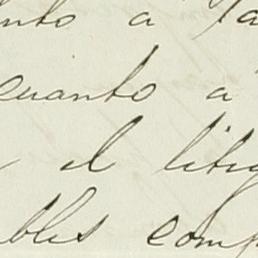 nto a la
cuanto a
el litig
bles comp